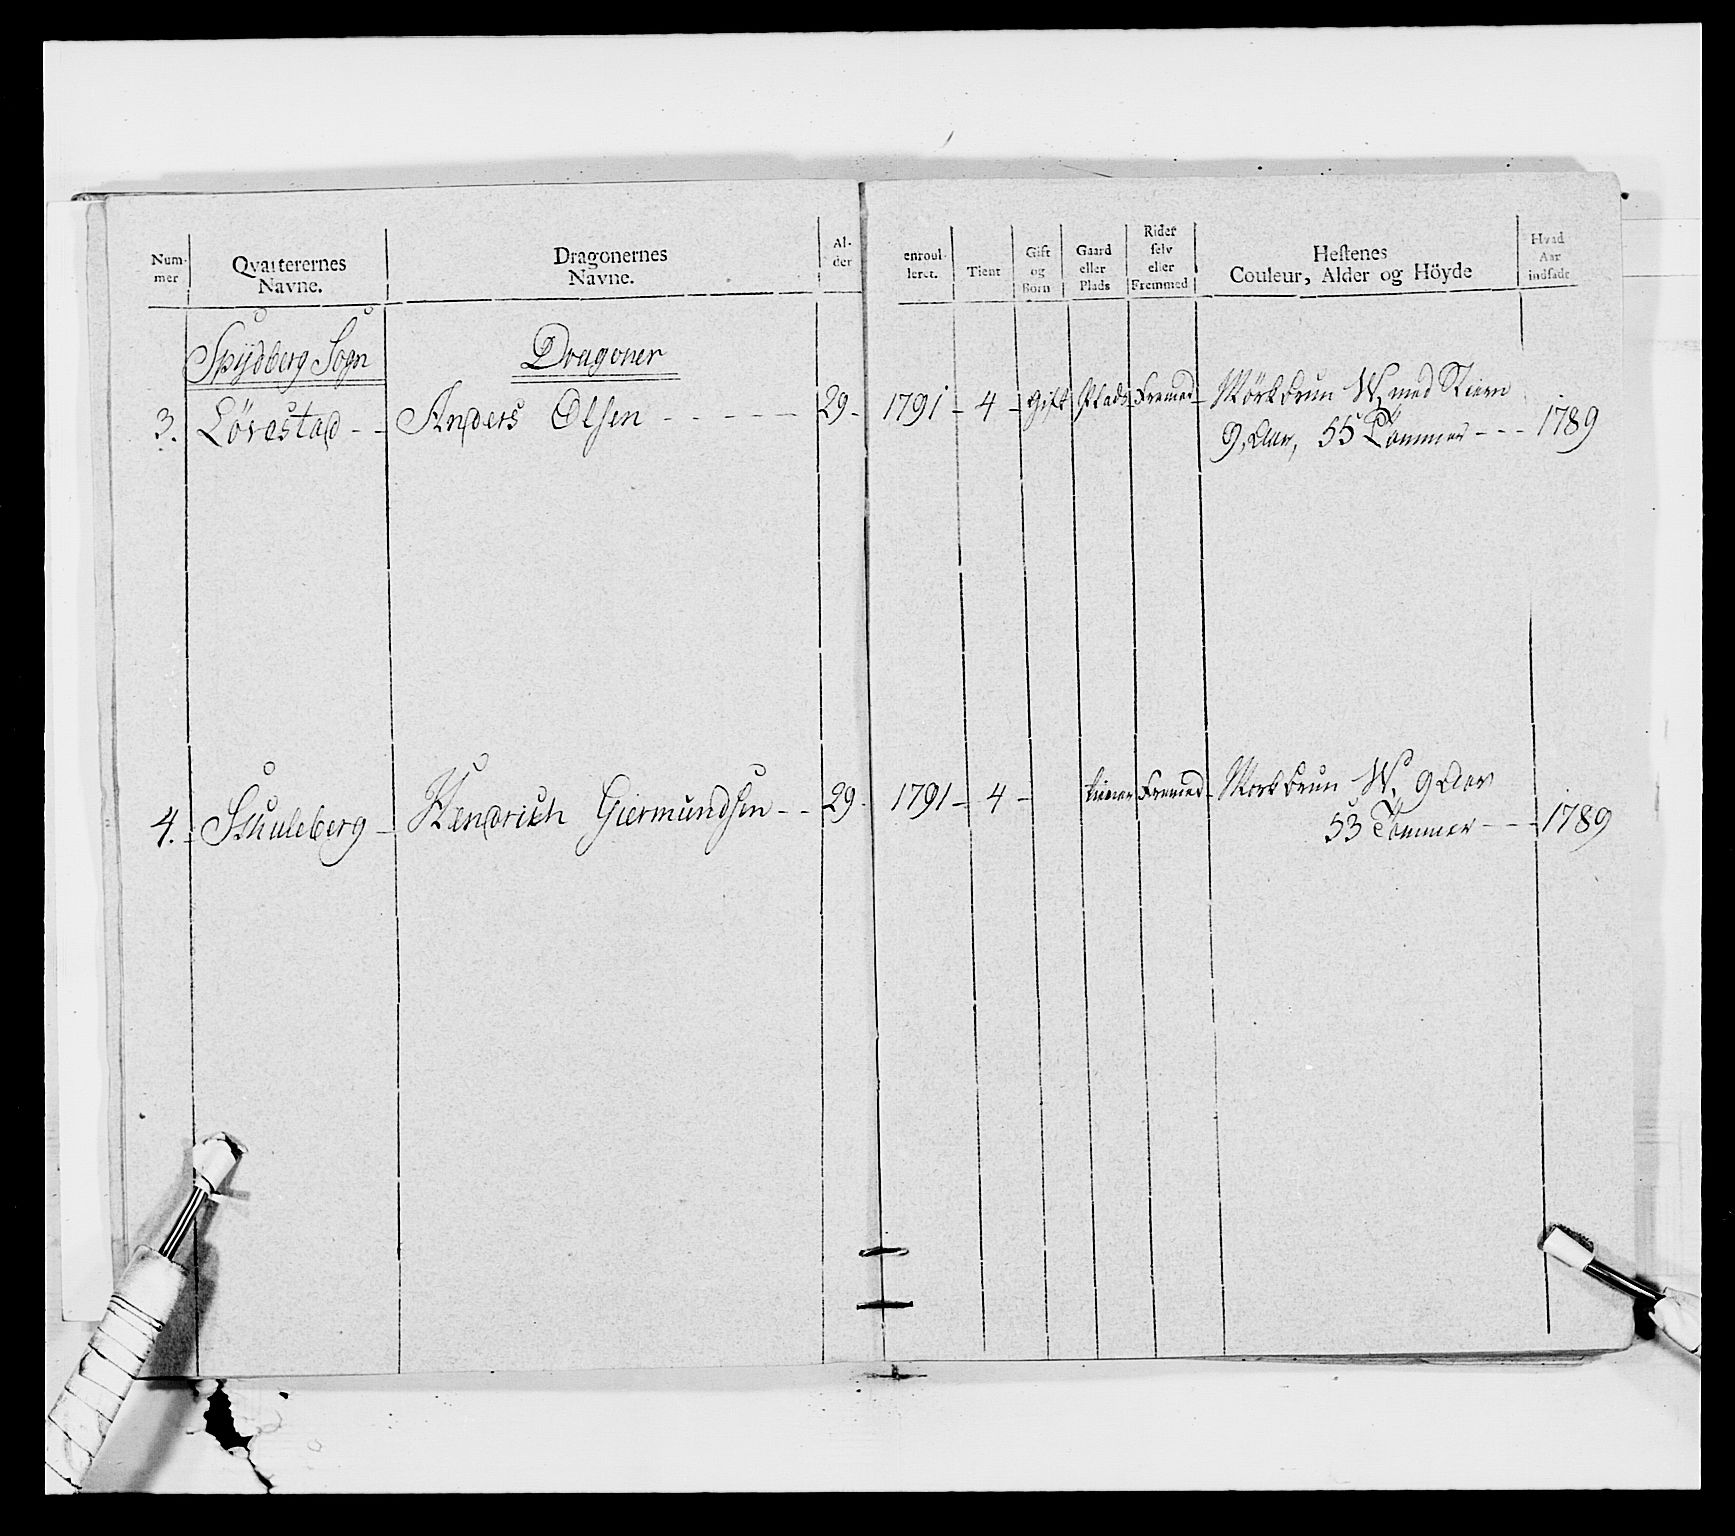 Num-
mer
Qvarterernes
Navne.
Dragonernes
Navne.
Al-
der
enroul-
leret.
Tient
Gift
og
Born
Gaard
eller
Plads
Rider
selv
eller
Fremmed
Hestenes
Couleur, Alder og Höyde
Hvad
Aar
indsadt
Spydberg Sogn
Dragoner
3. Lövestad - - Anders Olsen - - - - - - 29- 1791 - 4 - Gift Plads Fremed - Mörkbrun W. med Stiern
9. Aar, 55 Tommer - - - 1789
4. Schuleberg - Hendrich Giermundsen - - 29- 1791 - 4 - tiener Fremed - Morkbrun W. 9 Aar
53 Tommer - - - 1789